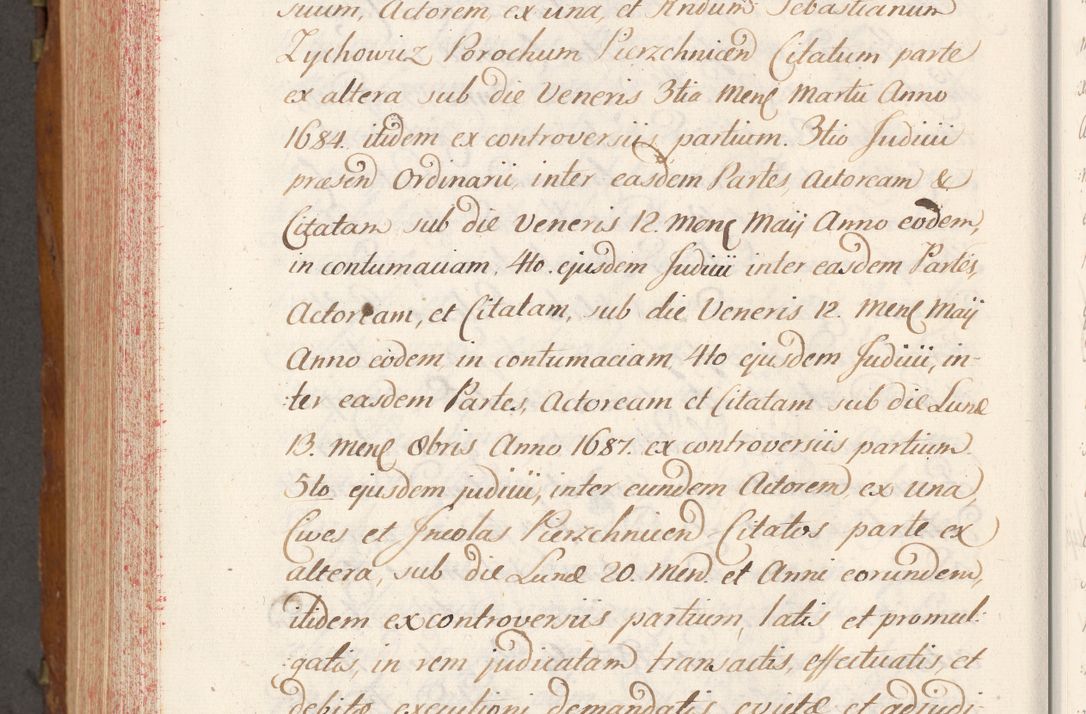 suum, Actorem, ex una, et Rndum Sebastianum
Zychowicz Parochum Pierzchnicen Citatum parte
ex altera sub die Veneris 3tia Mens Martii Anno
1684. itidem ex controversiis partium. 3tio Judicii
præsen Ordinarii, inter easdem Partes, Actoream &
Citatam sub die Veneris 12. Mens Maij Anno eodem,
in contumaciam. 4to. ejusdem Judicii inter easdem Partes,
Actoream, et Citatam, sub die Veneris 12. Mens Maij
Anno eodem, in contumaciam, 4to ejusdem Judicii, in-
ter easdem Partes, Actoream et Citatam sub die Lunæ
13. Mens 8bris Anno 1687. ex controversiis partium
5to ejusdem judicii, inter eundem Actorem, ex una,
Cives et Incolas Pierzchnicen Citatos parte ex
altera, sub die Lunæ 20. Men. et Anni eorundem,
itidem ex controversiis partium, latis et promul:
gatis, in rem judicatam transactis, effectuatis, et
debitæ executioni demandatis, evictæ et adjudi-